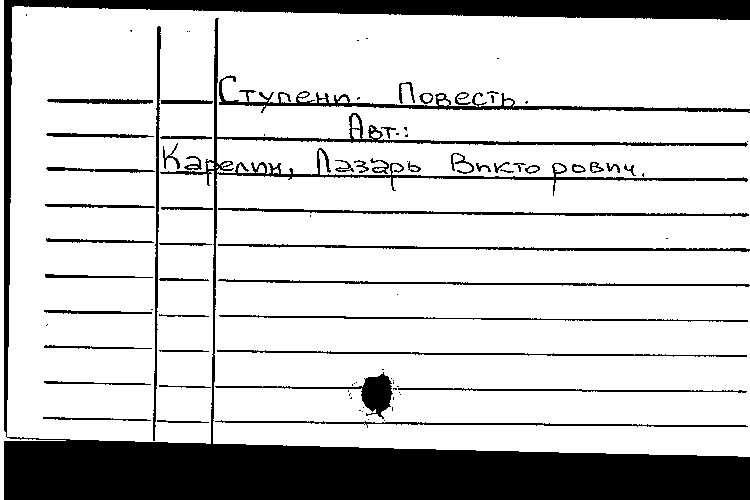 Ступени. Повесть.
Авт.:
Карелин, Лазарь Викторович.